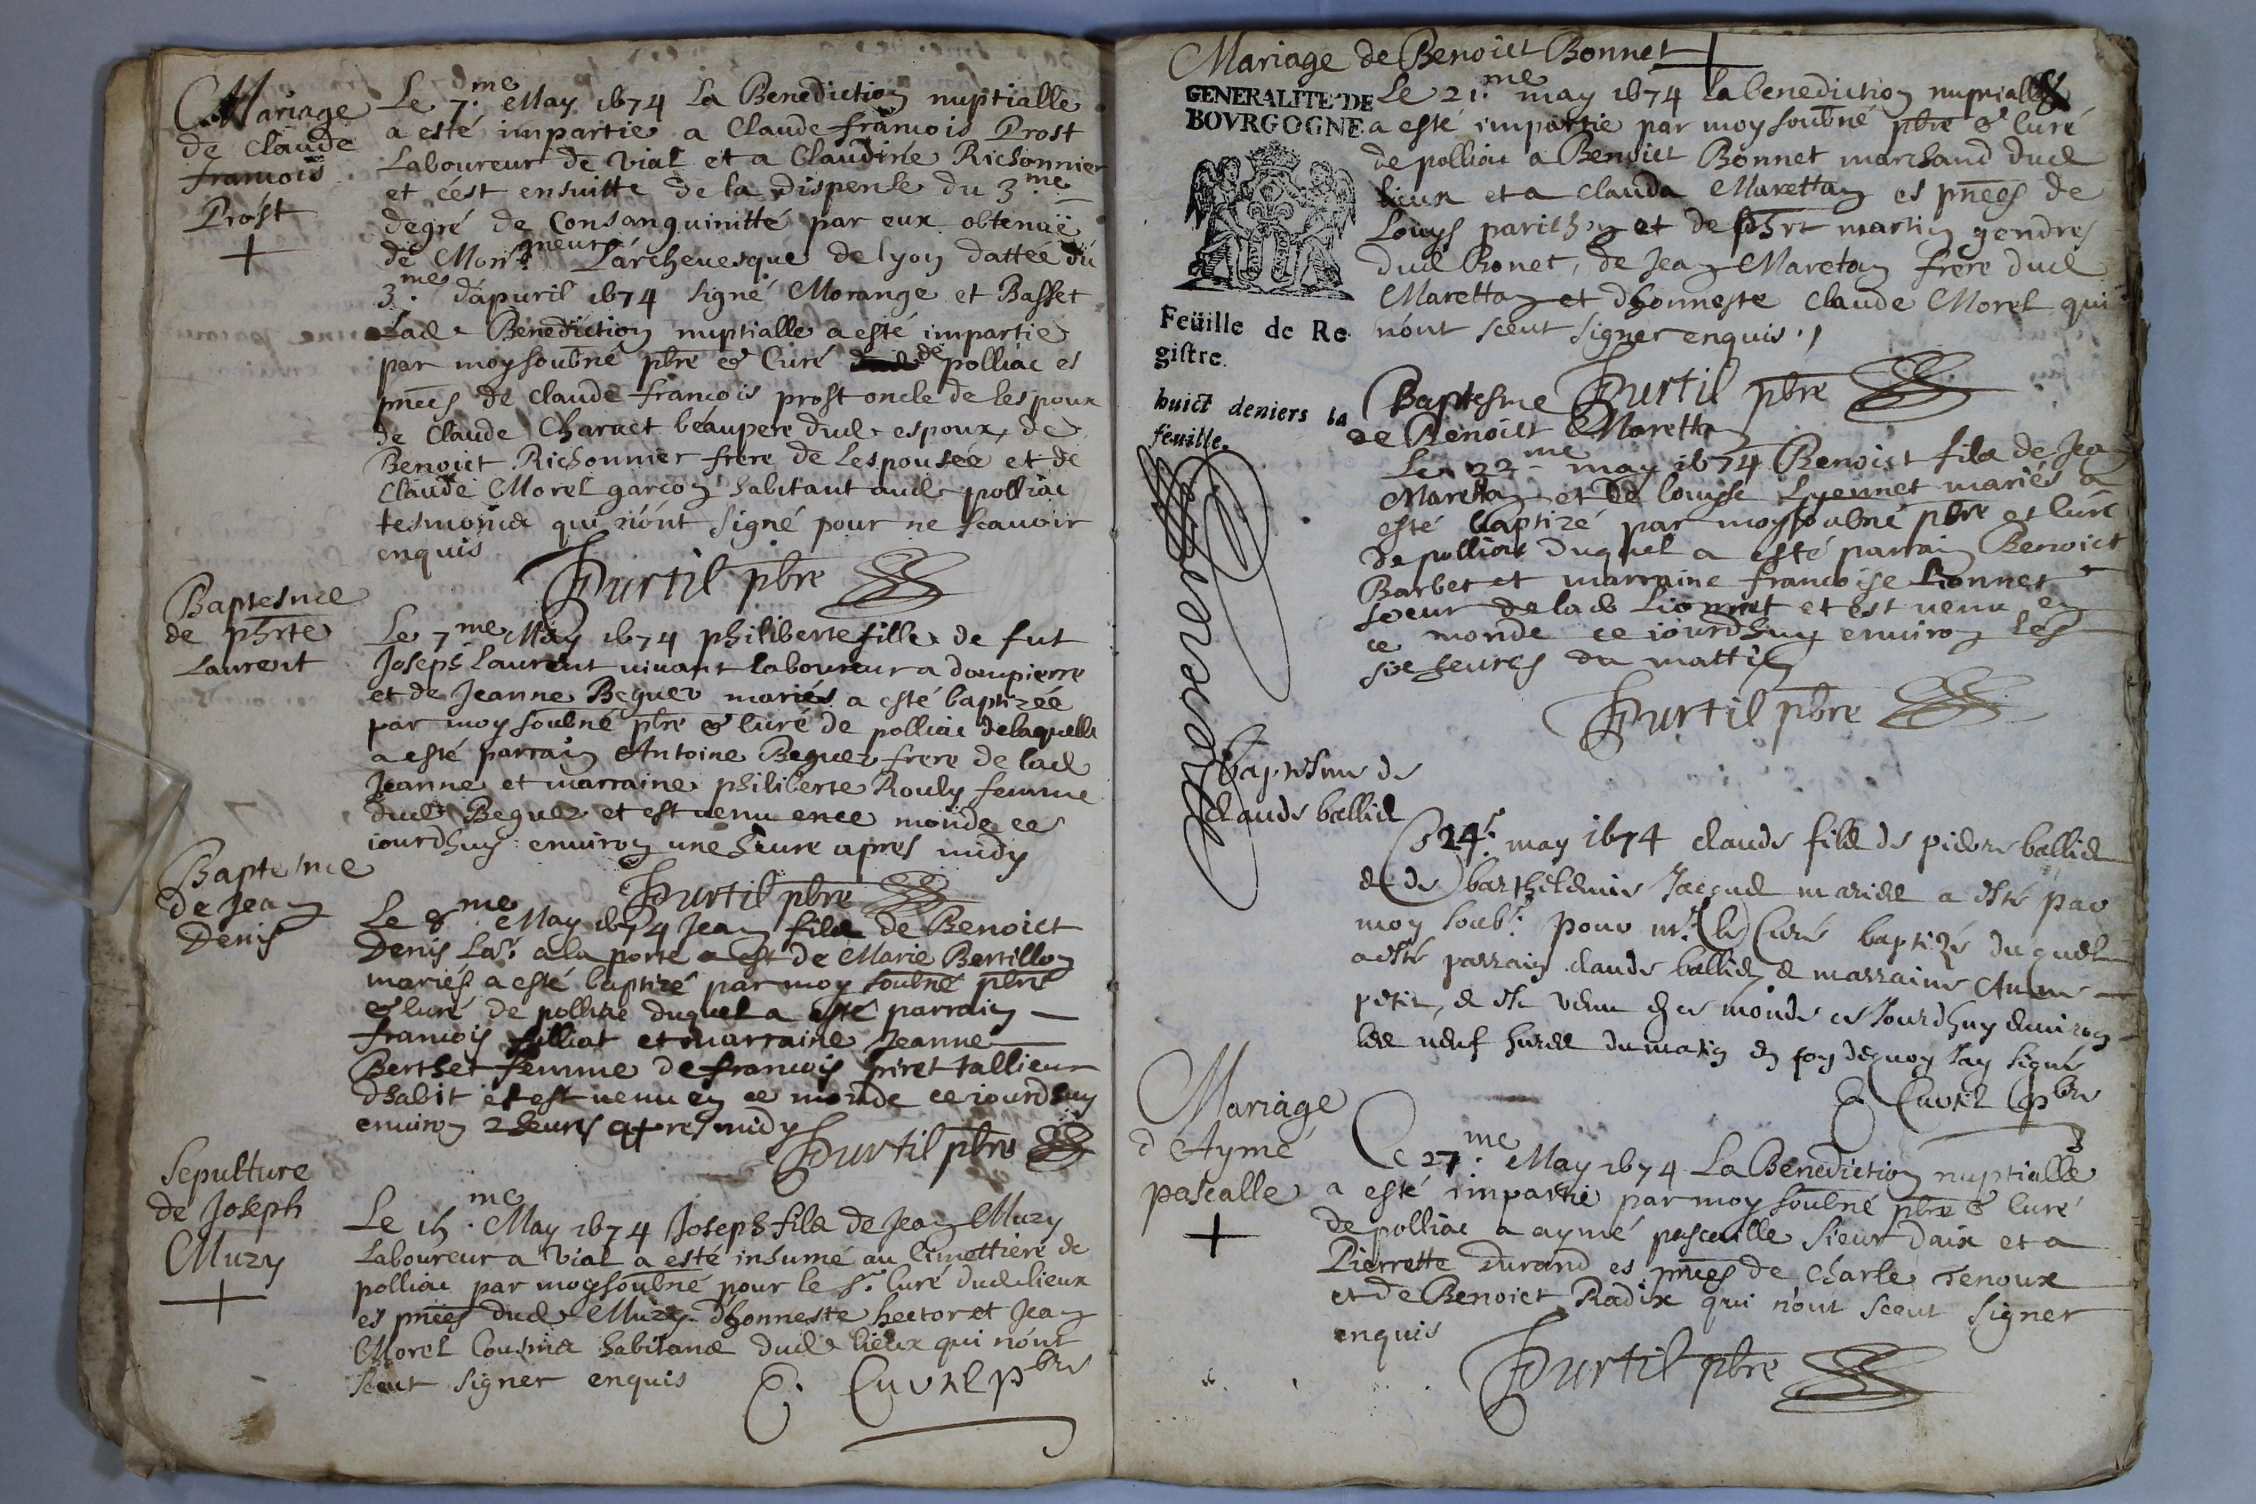 Mariage
de Claude
francois
Prost
Le 7.me May 1674 La Benediction nuptialle
a esté impartie a Claude francois Prost
Laboureur de vial et a Claudine Richonnier
et cést ensuitte de la dispense du 3.me
degré de Consanguinitté par eux obtenuë
de Monsgneur Lárcheuesque de lyon dattée du
3.me dápuril 1674 signé Morange et Basset
Lad. Benediction nuptialle a esté impartie
par moy soubné pbre & Curé de polliac es
pnces de Claude francois prost oncle de lespoux
de Claude Charuet béaupere dud. espoux, de
Benoict Richonnier frere de Lespousée et de
Claude Morel garcon habitant aud. polliac
tesmoins qui nónt signé pour ne scauoir
enquis
Purtil pbre
Baptesme
de phrte
Laurent
Le 7me May 1674 philiberte fille de fut
Joseph Laurent viuant laboureur a dompierre
et de Jeanne Beguet mariés a esté baptizée
par moy soubné pbre & curé de polliac delaquelle
a esté parrain Antoine Beguet frere de lad
Jeanne et marraine philiberte Rouly femme
dud Beguet et est venu ence monde ce
iourdhuy enuiron une heure apres midy
Purtil pbre
Baptesme
de Jean
Denis
Le 8me May 1674 Jean fils de Benoict
Denis Lar. a la porte et de Marie Bertillon
mariés a esté baptizé par moy soubné pbre
& curé de polliac duquel a esté parrain
francois filliat et marraine Jeanne
Berthet femme de francois piret tallieur
dhabit et est venu en ce monde ce iourdhuy
enuiron 2 heures apres midy
Purtil pbre
Sepulture
de Joseph
Muzy
Le 15.me May 1674 Joseph fils de Jean Muzy
Laboureur a Vial a esté inhumé au cimettiere de
polliac par moy soubné pour le sr. Curé dud. lieux
es pnces dud. Muzy dhonneste hector et Jean
Morel Cousins habitans dud. lieux qui nónt
sceut signer enquis
C. Cuuril pbre
Mariage de Benoict Bonnet
GENERALITE DE
BOVRGOGNE
Feüille de Re
gistre.
huict deniers la
feuille.
Le 21.me may 1674 la benediction nuptialle
a esté impartie par moy soubné pbre & curé
de polliac a Benoict Bonnet marchand dud
lieux et a Clauda Marettan es pnces de
Louys et de phrt martin gendres
dud Bonet, de Jean Maretan frere dud
Marettan et dhonneste Claude Morel qui
nónt sceut signer enquis
Purtil pbre
Baptesme
de Benoict Maretta
Le 22me may 1674 Benoist fils de Jean
Marettan et de Louyse Lyonnet mariés a
esté baptizé par moy soubné pbre et curé
de polliac duquel a esté parrain Benoict
Barbet et marraine francoise Lionnet
soeur de lad. Lionnet et est venu en
ce monde ce iourdhuy enuiron les
six heures du mattin
Purtil pbre
Baptesme de
Claude balliet
Ce 24e may 1674 claude fils de pierre balliet
et de barthelemie Jacquet mariés a esté par
moy soubs. pour mr. le Curé baptizé duquel
a esté parrain claude balliet et marraine Anne
petit, et est venu en ce monde ce Jourdhuy enuiron
les neuf heures du matin en foy dequoy Jay signé
C. Cuuril pbre
Mariage
d Aymé
pascalle
Le 27.me May 1674 La Benediction nuptialle
a esté impartie par moy soubné pbre & curé
de polliac a aymé pascalle sieur daix et a
Pierrette Durand es pnces de Charle Tenoux
et de Benoict Radix qui nónt sceut signer
enquis
Purtil pbre